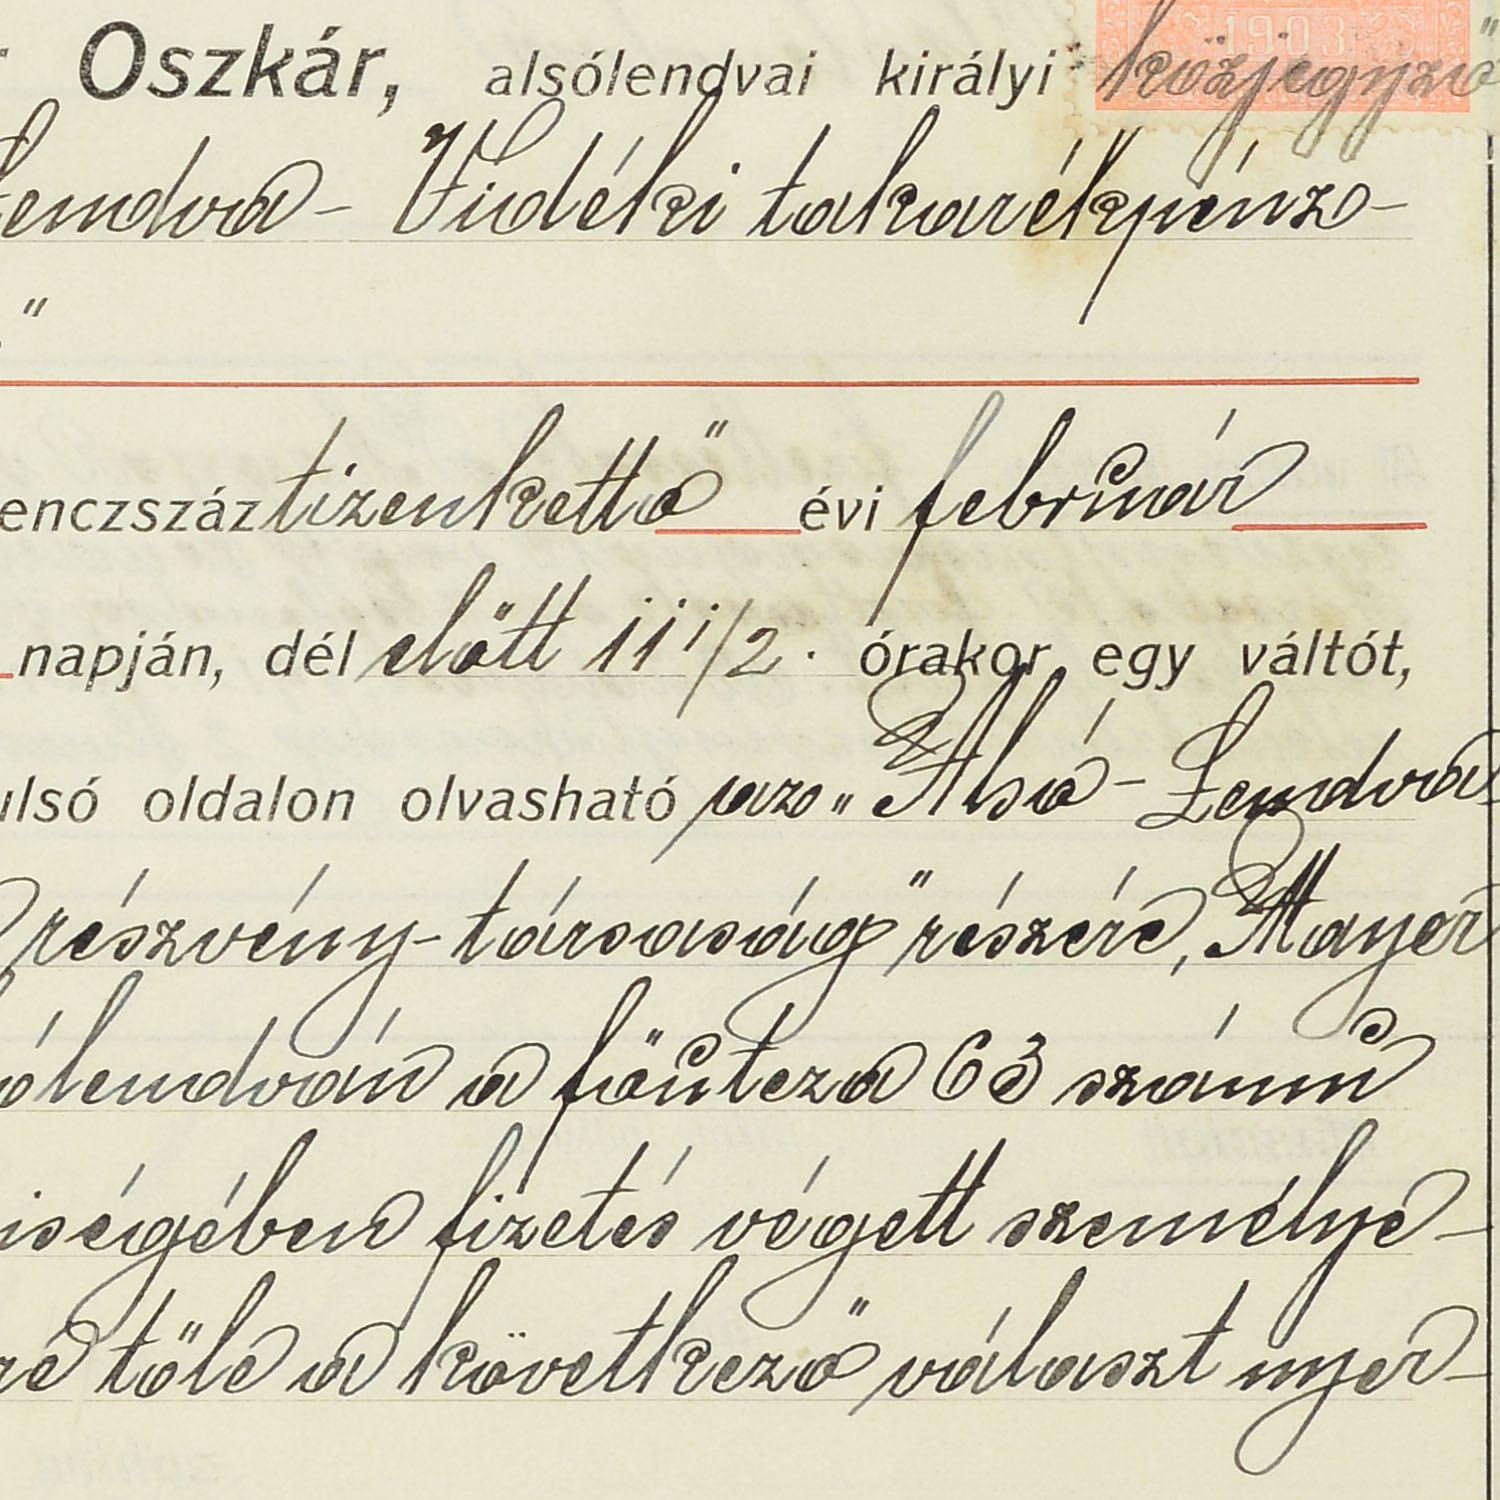 Oszkár, alsólendvai királyi közjegyző 1903
Lendva - Vidéki takarékpénz-
"
enczszáz tizenkettő évi február
napján, dél előtt 11 1/2. órakor egy váltót,
ulsó oldalon olvasható az „Alsó-Lendva
részvény-társaság" részére, Mayer
ólendván a főútcza 63 számú
iségében fizetés végett személye-
re tőle a következő választ nyer-